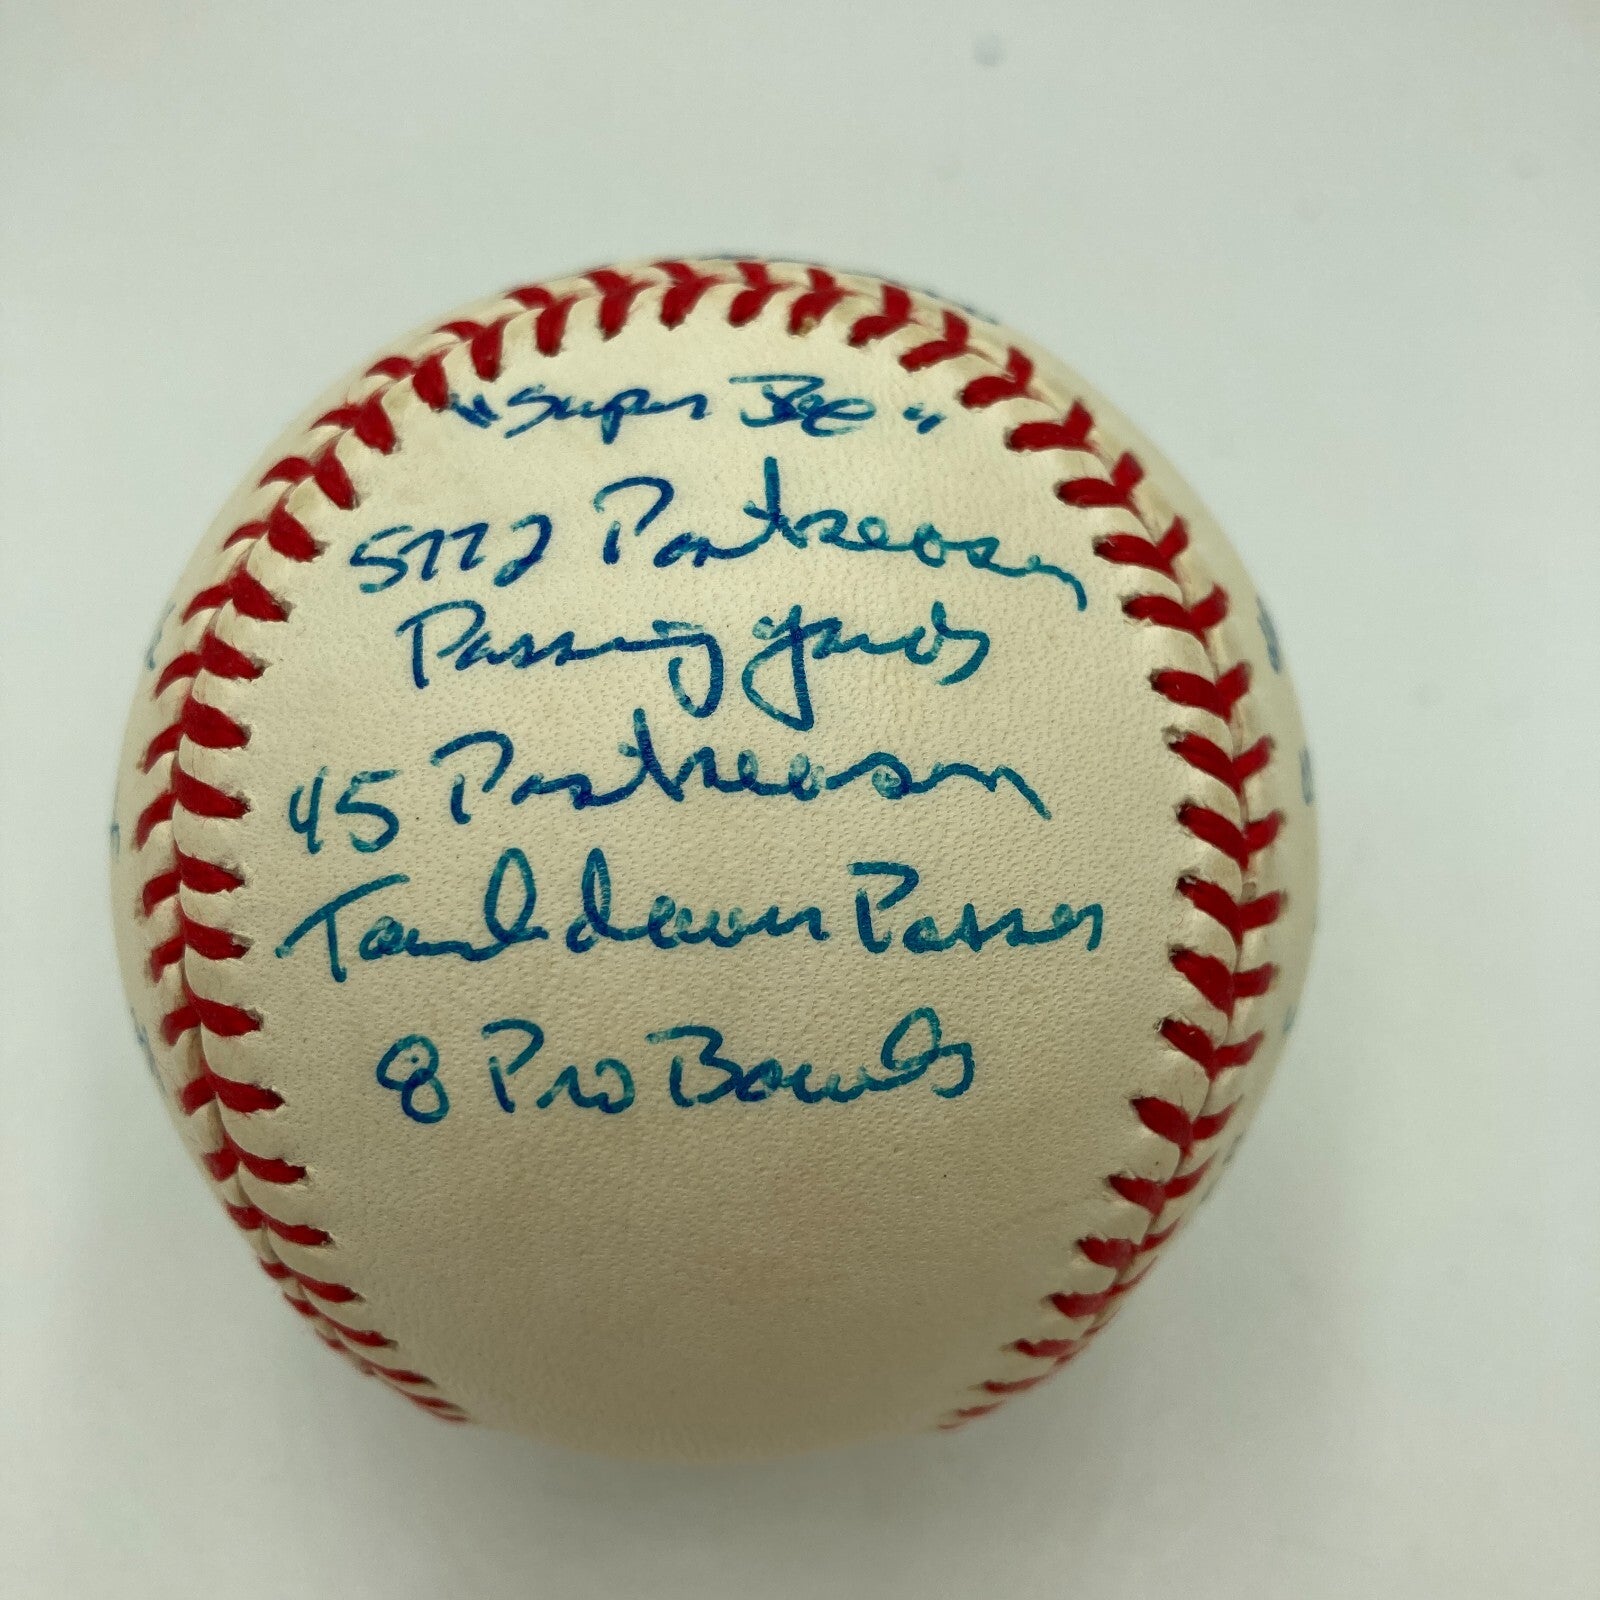 "Super Joe"
5772 Postseason
Passing Yards
45 Postseason
Touchdown Passes
8 Pro Bowls